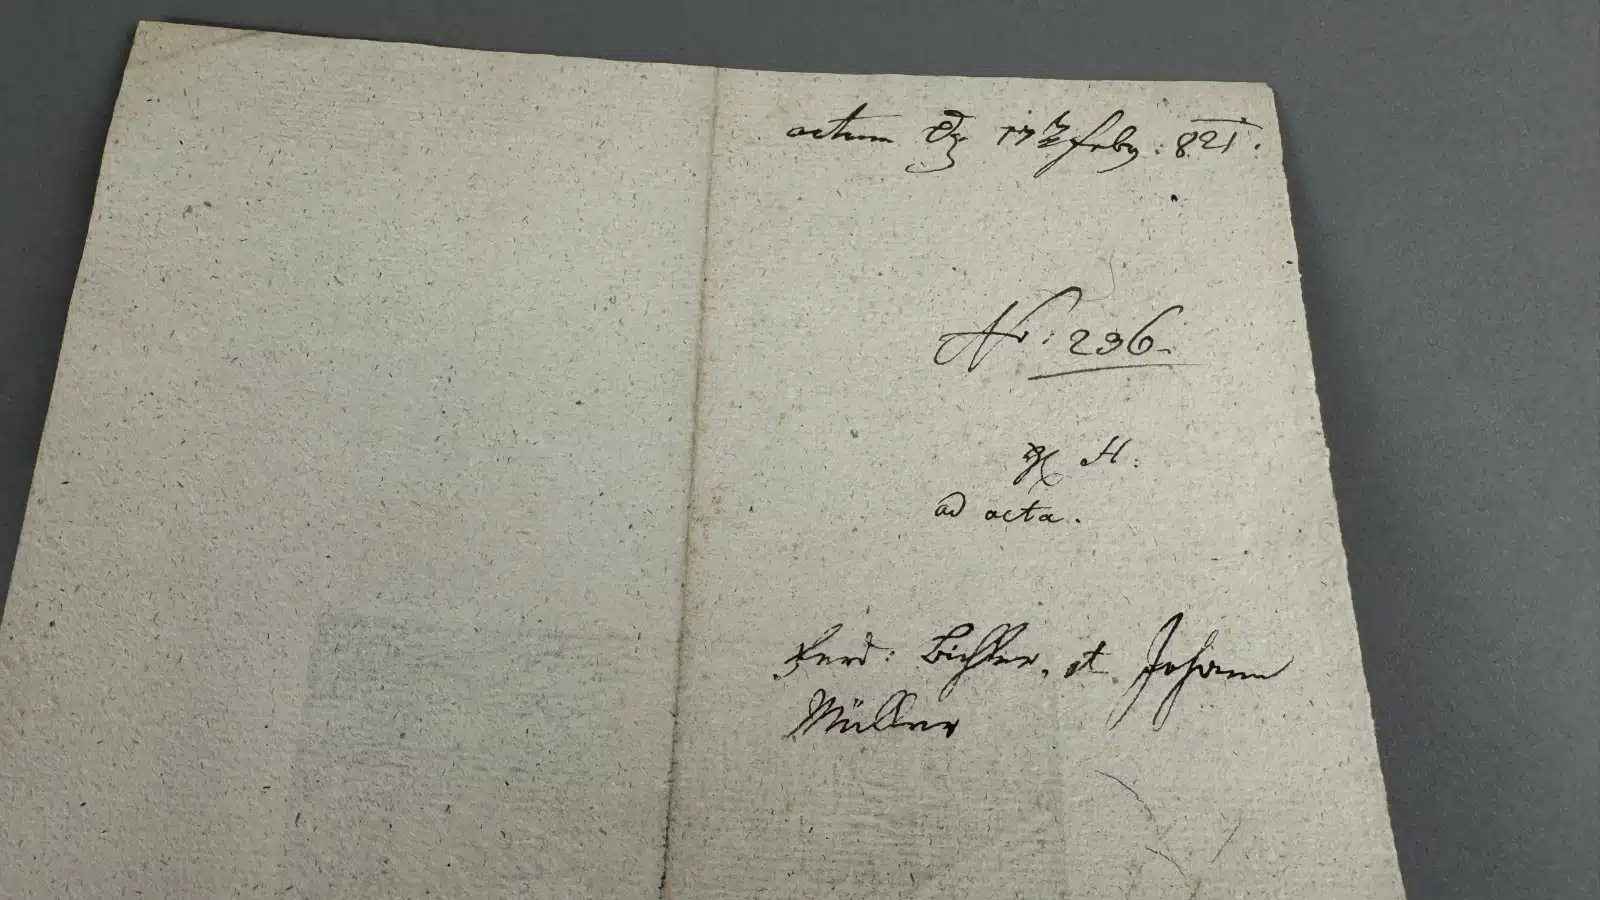 actum 17 Feby: 821.
Nr: 236.
H:
ad acta.
Ferd: Bichler, et Johann
Müller